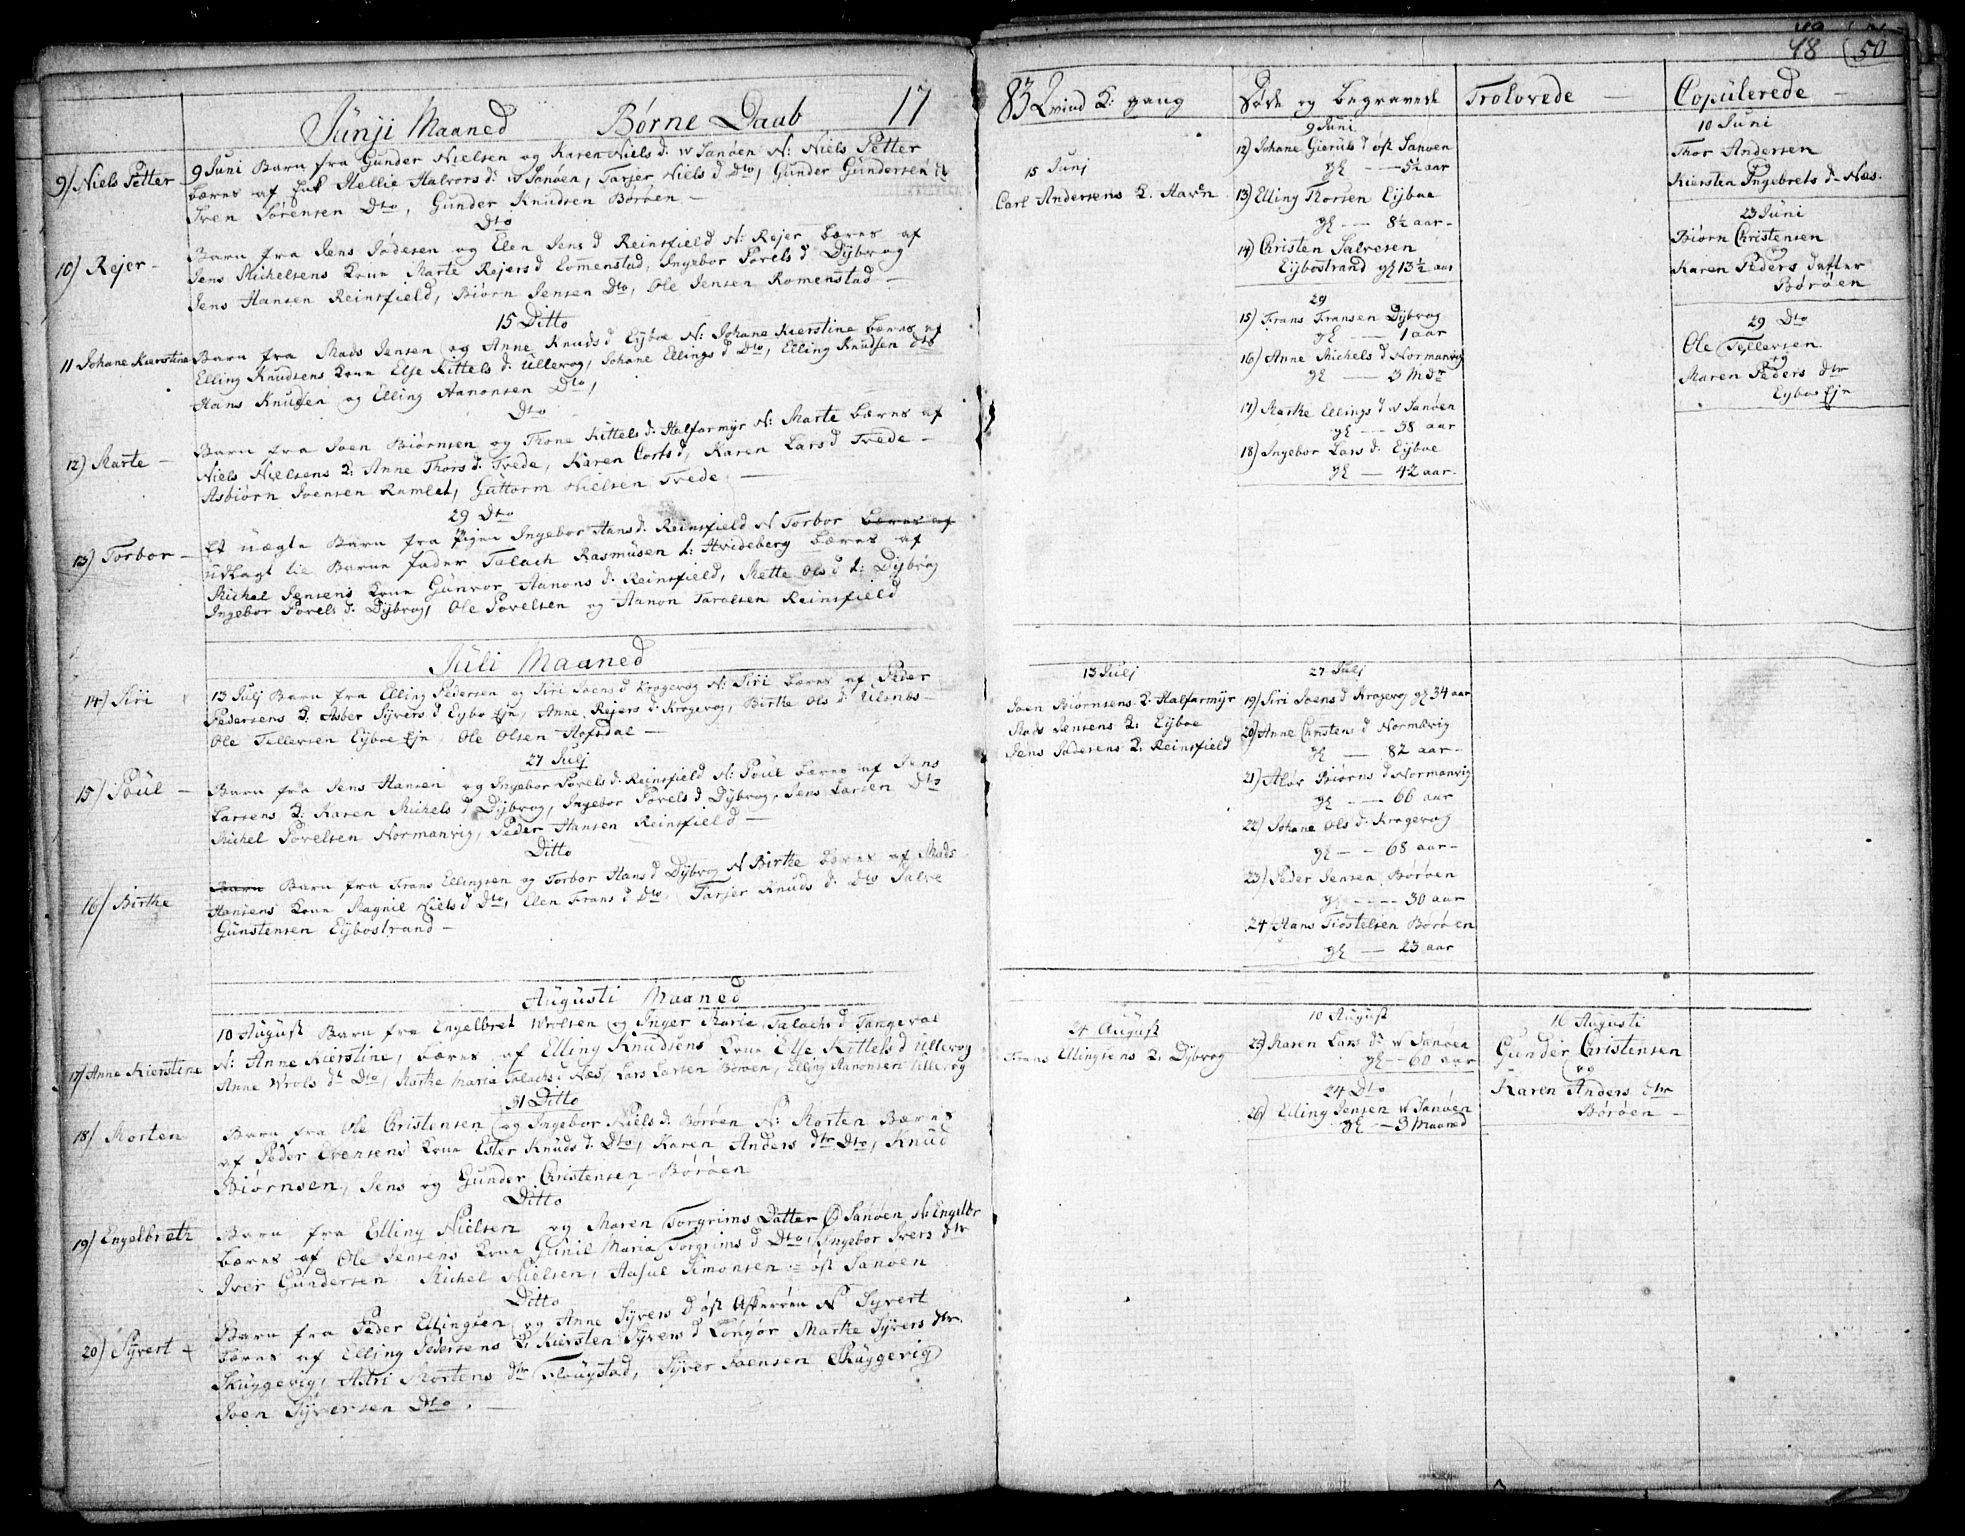 48 50
Junji Maaned Børne Daab 17
9/ Niels Petter
9 Juni Barn fra Gunder Nielsen og Karen Niels d: W Sanöen N: Niels Petter
bæres af Hellie Halvors d: W Sanöen, Tarjer Niels d Dto, Gunder Gundersen
Sven Sørensen Dto, Gunder Knudsen Borøen —
Dto
10) Rejer –
Barn fra Jens Jødesen og Elen Jens d Reinsfield N: Rejer bæres af
Jens Michelsens Kone Marte Rejers d Lommenstad, Ingebor Povels d Dijbvog
Jens Hansen Reinsfield, Biørn Jensen Dto, Ole Jensen Romenstad —
15 Ditto
11 Johane Kierstine
Barn fra Mads Jensen og Anne Knuds d Eijboe N: Johane Kierstine bæres af
Elling Knudsens Kone Else Kittels d: Ullevog, Johane Ellings d Dto, Elling Knudsen Dto
Hans Knudsen og Elling Aanonsen Dto,
Dto
12) Marte –
Barn fra Soen Biørnsen og Thone Kittels d: Halfarmijr N: Marte bæres af
Niels Nielsens K: Anne Thors d: Tvede, Karen Cortsd, Karen Lars d Tvede –
Asbiørn Soensen Ramlet, Guttorm Nielsen Tvede —
29 Dto
13) Torbor –
Et uægte Barn fra Pigen Ingebor Hans d: Reinsfield N Torbor bæres af
udlagt til Barne fader Talach Rasmusen f: Hvideberg bæres af
Michel Jensens Kone Gunvor Aanons d: Reinsfield, Mette Ols d f: Dijbvog
Ingebor Povels d: Dijbvog, Ole Povelsen og Aanon Taralsen Reinsfield
Juli Maaned
14) Siri
13 Julj Barn fra Elling Pedersen og Siri Soens d Kragevog N: Siri bæres af Peder
Pedersens K: Asber Sijvers d Eybo Ejn, Anne Rejers d: Kragevog, Birthe Ols d Ulsnes –
Ole Tellersen Eijboe Ejn, Ole Olsen Hofsdal —
27 Julj
15/ Poul –
Barn fra Jens Hansen og Ingebor Povels d: Reinsfield N: Poul bæres af Jens
Larsens K: Karen Michels d Dijbvog, Ingebor Povels d Dijbvog, Jens Larsen Dto
Michel Povelsen Normanvig, Peder Hansen Reinsfield —
Ditto
16/ Birthe
Barn Barn fra Frans Ellingsen og Torbor Hans d Dijbvog N Birthe bæres af Mads
Hansens Kone Magnil Niels d Dto, Elen Frans d Dto, Tarjer Knuds d: Dto Salve
Gunstensen Eijbostrand –
Augusti Maaned
17/ Anne Kierstine
10 August Barn fra Engelbret Wrolsen og Inger Maria Talachs d Tangeval
N: Anne Kierstine, bæres af Elling Knudsens Kone Else Kittels d Ullevog
Anne Wrols dr Dto, Marthe Maria Talachs d Næs, Lars Larsen Borøen, Elling Aanonsen Ullevog
31 Ditto
18/ Morten
Barn fra Ole Christensen og Ingebor Niels d. Børøen N: Morten Bæres
af Peder Evensens Kone Ester Knuds d: Dto, Karen Anders dtr Dto, Knud
Biørnsen, Jens og Gunder Christensen Børøen
Ditto
19/ Engelbreth
Barn fra Elling Nielsen og Maren Torgrims Datter Ø Sanøen N: Engelbr
bæres af Ole Jensens Kone Gunil Maria Torgrims d Dto, Ingebor Ivers dtr
Iver Gundersen Michel Nielsen, Aasul Simonsen øst Sanøen
Ditto
20) Sijvert
Barn fra Peder Ellingsen og Anne Sijvers d øst Askerøen N: Sijvert
bæres af Elling Pedersens K: Kiersten Sijvers d Longør Marthe Sijvers dtr.
Skuggevig, Astri Mortens dtr Flougstad, Sijver Soensen Skuggevig
Soen Sijversen Dto. —
83 Qvind K: gang
15 Junj
Carl Andersens K. Havn
13 Julj
Soen Biørnsens K: Halfarmijr
Mads Jensens K: Eijboe
Jens Jødesens K: Reinsfield
24 August
Frans Ellingsens K: Dijbvog
Døde og begravede
9 Juni
12) Johane Gieruls d øst Sanøen
gl — 5½ aar
13) Elling Thorsen Eijboe
gl – – 8½ aar –
14) Christen Salvesen
Eijbostrand gl 13½ aar
29
15) Frans Fransen Dijbvog
gl — 1 aar
16) Anne Michels d Normanvig
gl — 3 Mdr
17) Marthe Ellings d W Sanøen
gl — 38 aar
18) Ingebor Lars d. Eijboe
gl — 42 aar –
27 Julj
19) Siri Soens d Kragevog gl 34 aar
20) Anne Christens d Normanvig
gl — 82 aar –
21) Aløv Biørns d Normanvig
gl — 66 aar
22) Johane Ols d. Kragevog
gl – – 68 aar –
23) Peder Jensen Børøen
gl – – – 30 aar
24 Hans Tiostelsen Børøen
gl — 23 aar
10 August
25) Karen Lars dr W Sanøen
gl – 60 aar
24 Dto
26) Elling Jensen W Sanøen
gl – 3 Maaned
Trolovede —
16 Augusti
Gunder Christensen
og
Karen Anders dtr
Børøen –
Copulerede –
10 Juni
Thor Andersen
og
Kiersten Ingebrets d – Næs.
23 Juni
Biørn Christensen
og
Karen Peders datter
Børøen
29 Dto
Ole Tellersen
og
Maren Peders dtr
Eyboe Ejn